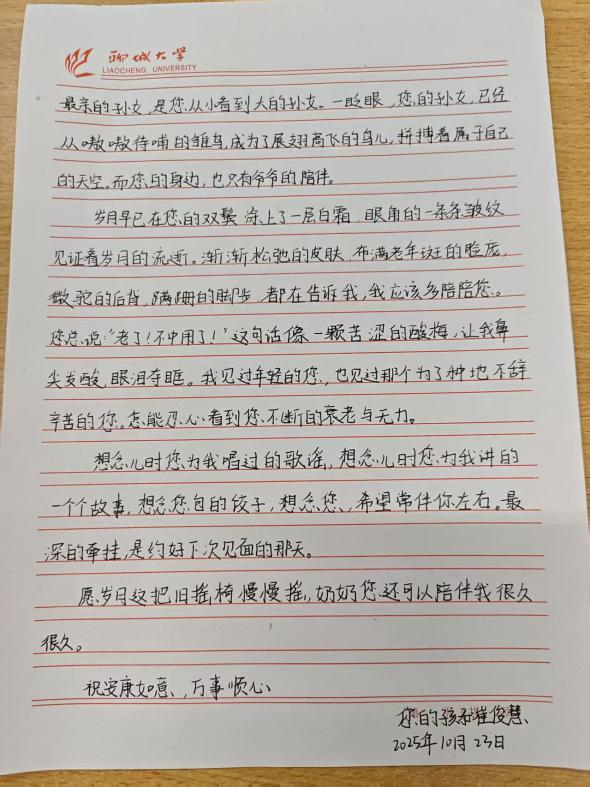 聊城大学
LIAOCHENG UNIVERSITY
最亲的孙女,是您从小看到大的孙女。一眨眼,您的孙女,已经
从嗷嗷待哺的雏鸟,成为了展翅高飞的鸟儿,拼搏着属于自己
的天空。而您的身边,也只有爷爷的陪伴。
岁月早已在您的双鬓涂上了一层白霜,眼角的一条条皱纹
见证着岁月的流逝。渐渐松弛的皮肤,布满老年斑的脸庞,
微驼的后背,蹒跚的脚步,都在告诉我,我应该多陪陪您。
您总说:“老了!不中用了!”这句话像一颗苦涩的酸梅,让我鼻
尖发酸,眼泪夺眶。我见过年轻的您,也见过那个为了种地不辞
辛苦的您。怎能忍心看到您不断的衰老与无力。
想念儿时您为我唱过的歌谣,想念儿时您为我讲的
一个个故事,想念您包的饺子,想念您,希望常伴你左右。最
深的牵挂,是约好下次见面的那天。
愿岁月这把旧摇椅慢慢摇,奶奶您还可以陪伴我很久
很久。
祝安康如意、万事顺心
您的孩子崔俊慧
2025年10月23日